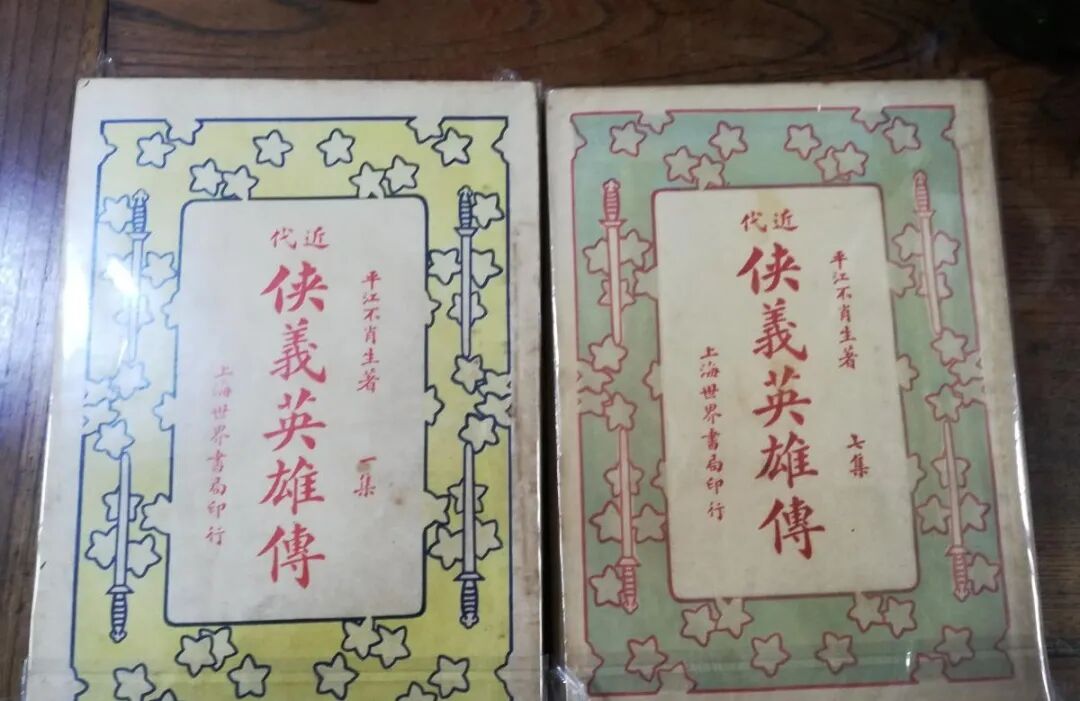 近代
俠義英雄傳
平江不肖生著
一集
上海世界書局印行
近代
俠義英雄傳
平江不肖生著
七集
上海世界書局印行